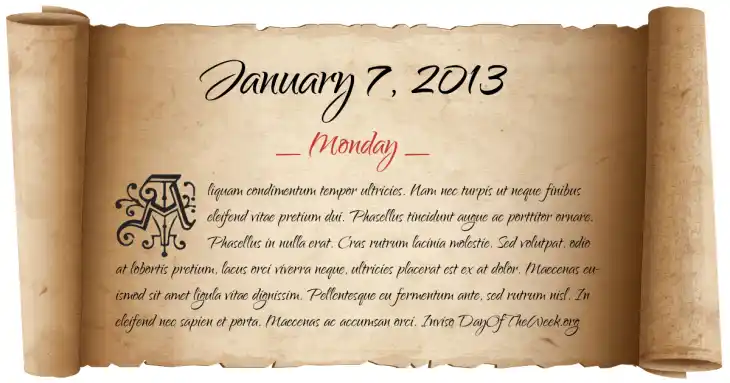 January 7, 2013
_ Monday _
Aliquam condimentum tempor ultricies. Nam nec turpis ut neque finibus
eleifend vitae pretium dui. Phasellus tincidunt augue ac porttitor ornare.
Phasellus in nulla erat. Cras rutrum lacinia molestie. Sed volutpat, odio
at lobortis pretium, lacus orci viverra neque, ultricies placerat est ex at dolor. Maecenas eu-
ismod sit amet ligula vitae dignissim. Pellentesque eu fermentum ante, sed rutrum nisl. In
eleifend nec sapien et porta. Maecenas ac accumsan orci. Inviso DayOfTheWeek.org